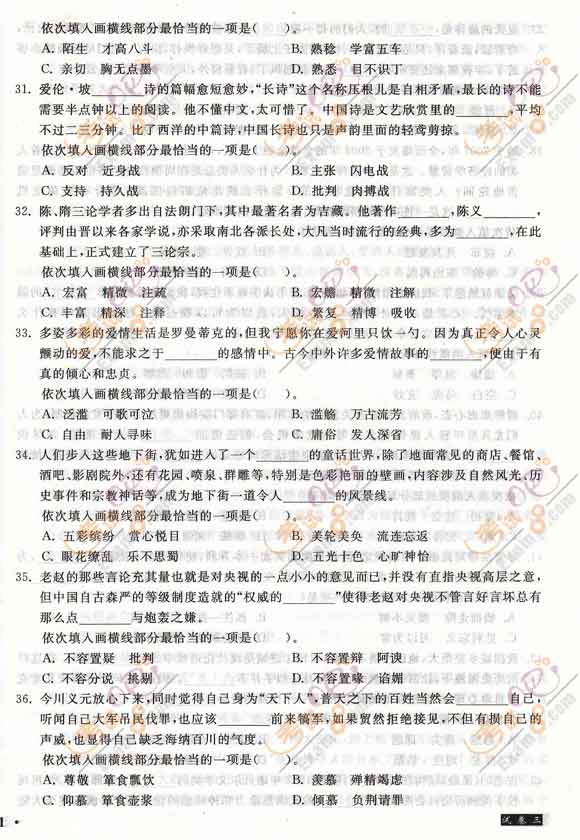 依次填入画横线部分最恰当的一项是(　　)。
A. 陌生　才高八斗　B. 熟稔　学富五车
C. 亲切　胸无点墨　D. 熟悉　目不识丁
31. 爱伦·坡______诗的篇幅愈短愈妙,“长诗”这个名称压根儿是自相矛盾,最长的诗不能
需要半点钟以上的阅读。他不懂中文,太可惜了。中国诗是文艺欣赏里的______,平均
不过二三分钟。比了西洋的中篇诗,中国长诗也只是声韵里面的轻鸢剪掠。
依次填入画横线部分最恰当的一项是(　　)。
A. 反对　近身战　B. 主张　闪电战
C. 支持　持久战　D. 批判　肉搏战
32. 陈、隋三论学者多出自法朗门下,其中最著名者为吉藏。他著作______,陈义______,
评判由晋以来各家学说,亦采取南北各派长处,大凡当时流行的经典,多为______,在此
基础上,正式建立了三论宗。
依次填入画横线部分最恰当的一项是(　　)。
A. 宏富　精微　注疏　B. 宏赡　精微　注解
C. 丰富　精深　注释　D. 繁复　精博　吸收
33. 多姿多彩的爱情生活是罗曼蒂克的,但我宁愿你在爱河里只饮一勺。因为真正令人心灵
颤动的爱,不能求之于______的感情中。古今中外许多爱情故事的______,便由于有
真的倾心和忠贞。
依次填入画横线部分最恰当的一项是(　　)。
A. 泛滥　可歌可泣　B. 滥觞　万古流芳
C. 自由　耐人寻味　D. 庸俗　发人深省
34. 人们步入这些地下街,犹如进入了一个______的童话世界,除了地面常见的商店、餐馆、
酒吧、影剧院外,还有花园、喷泉、群雕等,特别是色彩艳丽的壁画,内容涉及自然风光、历
史事件和宗教神话等,成为地下街一道令人______的风景线。
依次填入画横线部分最恰当的一项是(　　)。
A. 五彩缤纷　赏心悦目　B. 美轮美奂　流连忘返
C. 眼花缭乱　乐不思蜀　D. 五光十色　心旷神怡
35. 老赵的那些言论充其量也就是对央视的一点小小的意见而已,并没有直指央视高层之意,
但中国自古森严的等级制度造就的“权威的______”使得老赵对央视不管言好言坏总有
那么点______与炮轰之嫌。
依次填入画横线部分最恰当的一项是(　　)。
A. 不容置疑　批判　B. 不容置辩　阿谀
C. 不容分说　挑剔　D. 不容置喙　谄媚
36. 今川义元放心下来,同时觉得自己身为“天下人”,普天之下的百姓当然会______自己,
听闻自己大军吊民伐罪,也应该______前来犒军,如果贸然拒绝接见,不但有损自己的
声威,也显得自己缺乏海纳百川的气度。
依次填入画横线部分最恰当的一项是(　　)。
A. 尊敬　箪食瓢饮　B. 羡慕　殚精竭虑
C. 仰慕　箪食壶浆　D. 倾慕　负荆请罪
试卷三